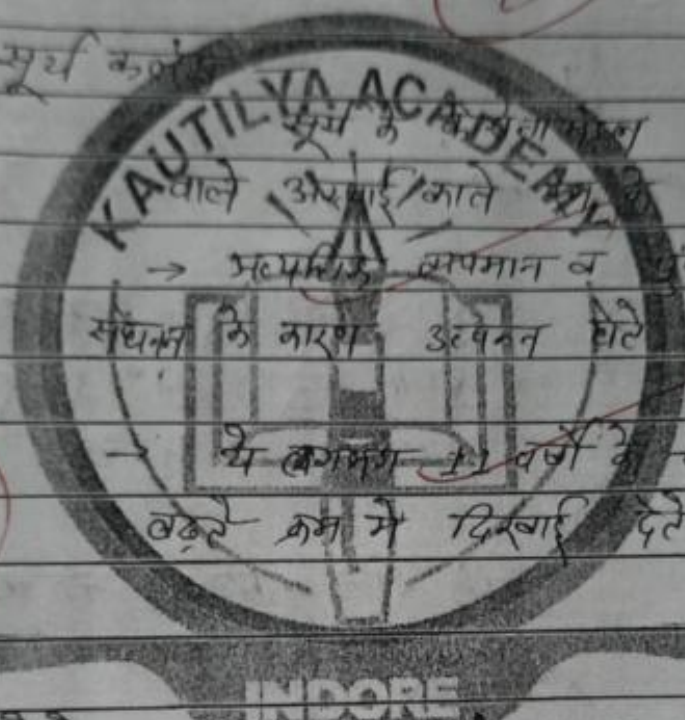 सूर्य कलंक
KAUTILYA ACADEMY
सूर्य के
वाले अस्थाई/काले
→ अत्यधिक तापमान व
संघनन के कारण उत्पन्न होते
→ ये लगभग 11 वर्षों के
बढ़ते क्रम में दिखाई देते
INDORE